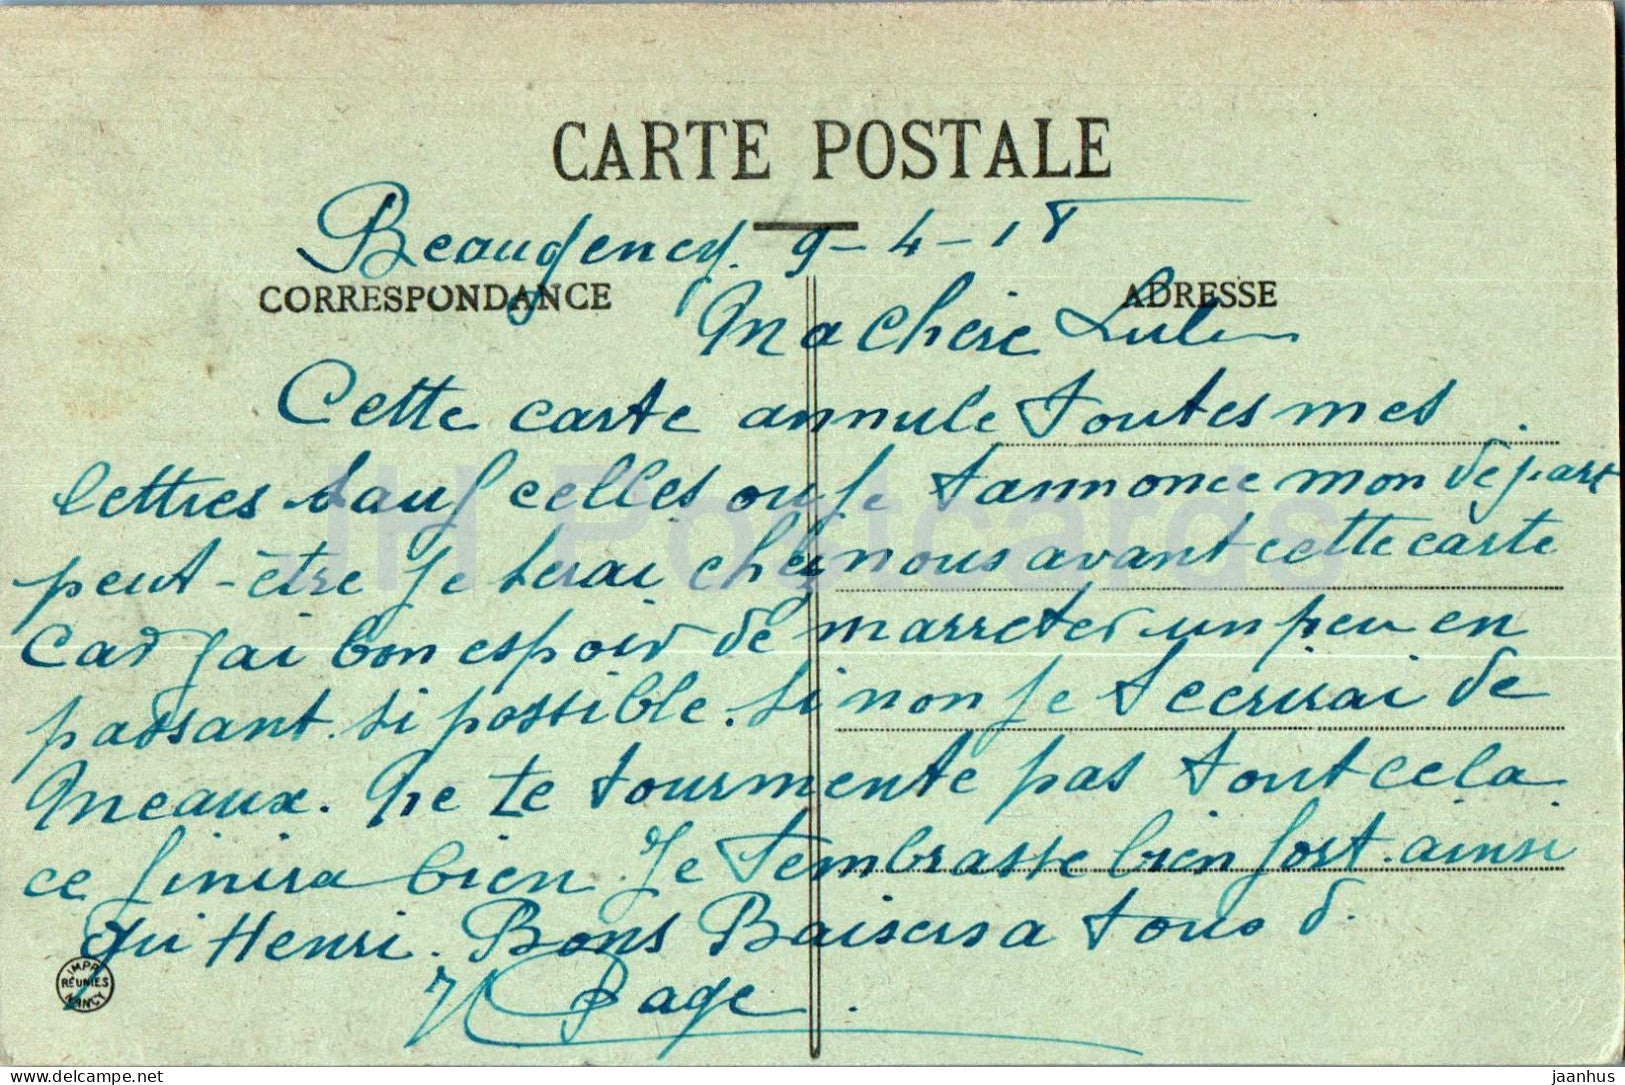 CARTE POSTALE
Beaugency. 9-4-18
CORRESPONDANCE
ADRESSE
Ma Chère Lulu
Cette carte annule toutes mes
lettres sauf celles ou je t'annonce mon départ
peut-être je serai chez nous avant cette carte
Car j'ai bon espoir de marreter un peu en
passant si possible. Si non je t'ecrirai de
Meaux. Ne te tourmente pas tout cela
ce finira bien. Je t'embrasse bien fort. ainsi
qui Henri. Bons Baisers a tous d.
H Page.
IMPR. RÉUNIES NANCY
JH Postcards
delcampe.net
jaanhus